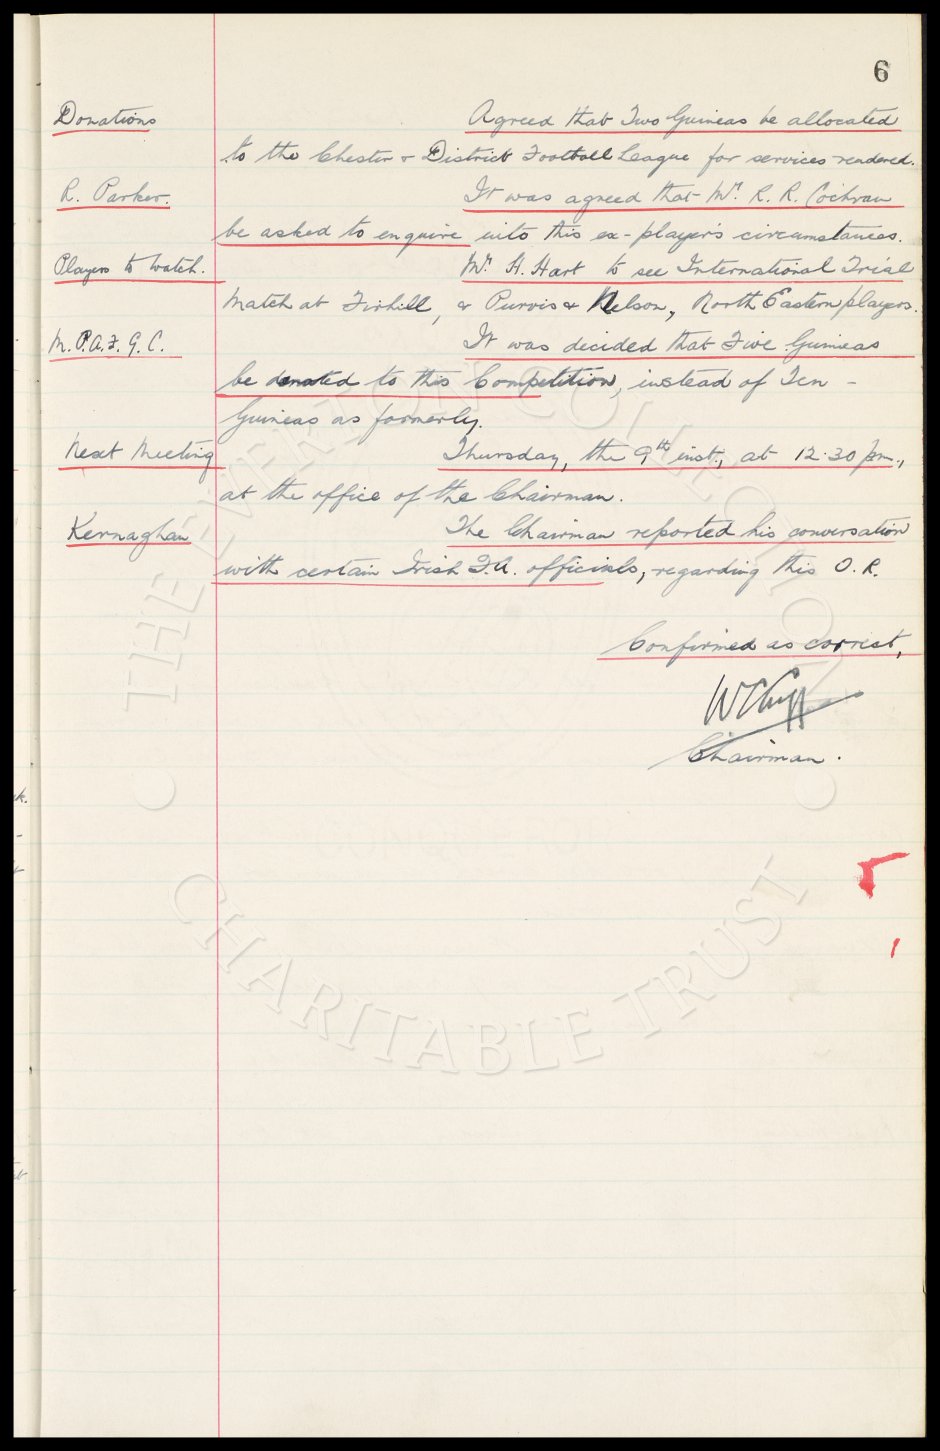 6
Donations Agreed that Two Guineas be allocated
to the Chester & District Football League for services rendered.
R. Parker. It was agreed that Mr. R. R. Cochran
be asked to enquire into this ex-player's circumstances.
Players to Watch. Mr. H. Hart to see International Trial
Match at Firhill, & Purvis & Nelson, North Eastern players.
M.P.A.F.G.C. It was decided that Five Guineas
be donated to this Competition, instead of Ten -
Guineas as formerly.
Next Meeting Thursday, the 9th inst., at 12.30 pm.,
at the office of the Chairman.
Kernaghan The Chairman reported his conversation
with certain Irish F.A. officials, regarding this O.R.
Confirmed as correct,
W C Cuff
Chairman.
THE EVERTON COLLECTION
CHARITABLE TRUST